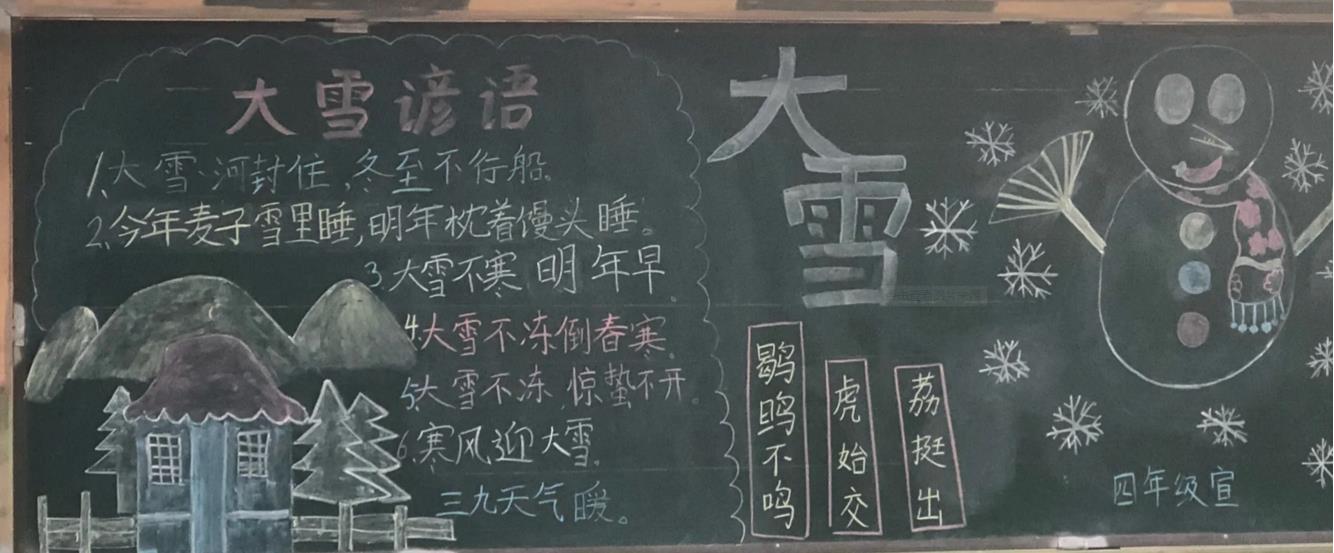 大雪谚语
1.大雪河封住,冬至不行船。
2.今年麦子雪里睡,明年枕着馒头睡。
3.大雪不寒明年早。
4.大雪不冻倒春寒。
5.大雪不冻,惊蛰不开。
6.寒风迎大雪,
三九天气暖。
大雪
鹖鸣不鸣
虎始交
荔挺出
四年级宣